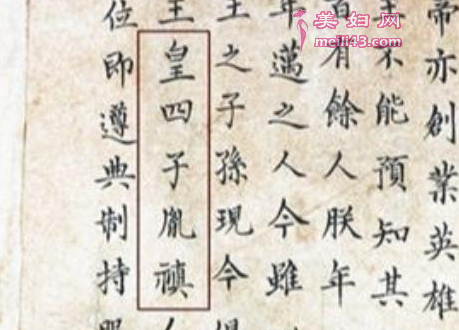 美妇网
meli43.com
帝亦創業英雄
主不能預知其
百有餘人朕年
年邁之人今雖
王之子孫現今
王皇四子胤禛
位即遵典制持